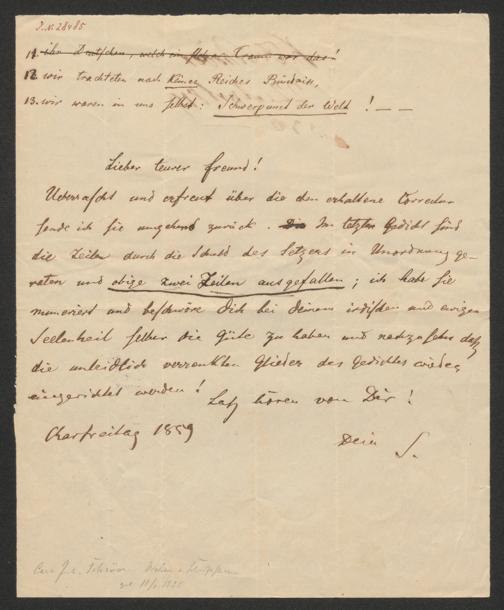 J.N. 28485
11. ihr Deutschen, welch ein Traum war das!
12. wir trachteten nach Reiches Bündniss,
13. wir waren in uns selbst: Schwerpunct der Welt! — —
Lieber teurer Freund!
Ueberrascht und erfreut über die eben erhaltene Correctur
sende ich sie umgehend zurück. Die Im letzten Gedicht sind
die Zeilen durch die Schuld des Setzers in Unordnung ge-
raten und obige zwei Zeilen ausgefallen; ich habe sie
numeriert und beschwöre Dich bei Deinem irdischen und ewigen
Seelenheil selber die Güte zu haben und nachzusehen daß
die unleidlich verrenkten Glieder des Gedichtes wieder
eingerichtet werden! Laß hören von Dir!
Charfreitag 1859
Dein S.